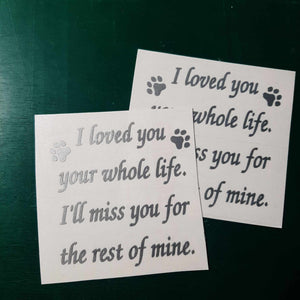 I loved you
your whole life.
I'll miss you for
the rest of mine.
I loved you
your whole life.
miss you for
rest of mine.